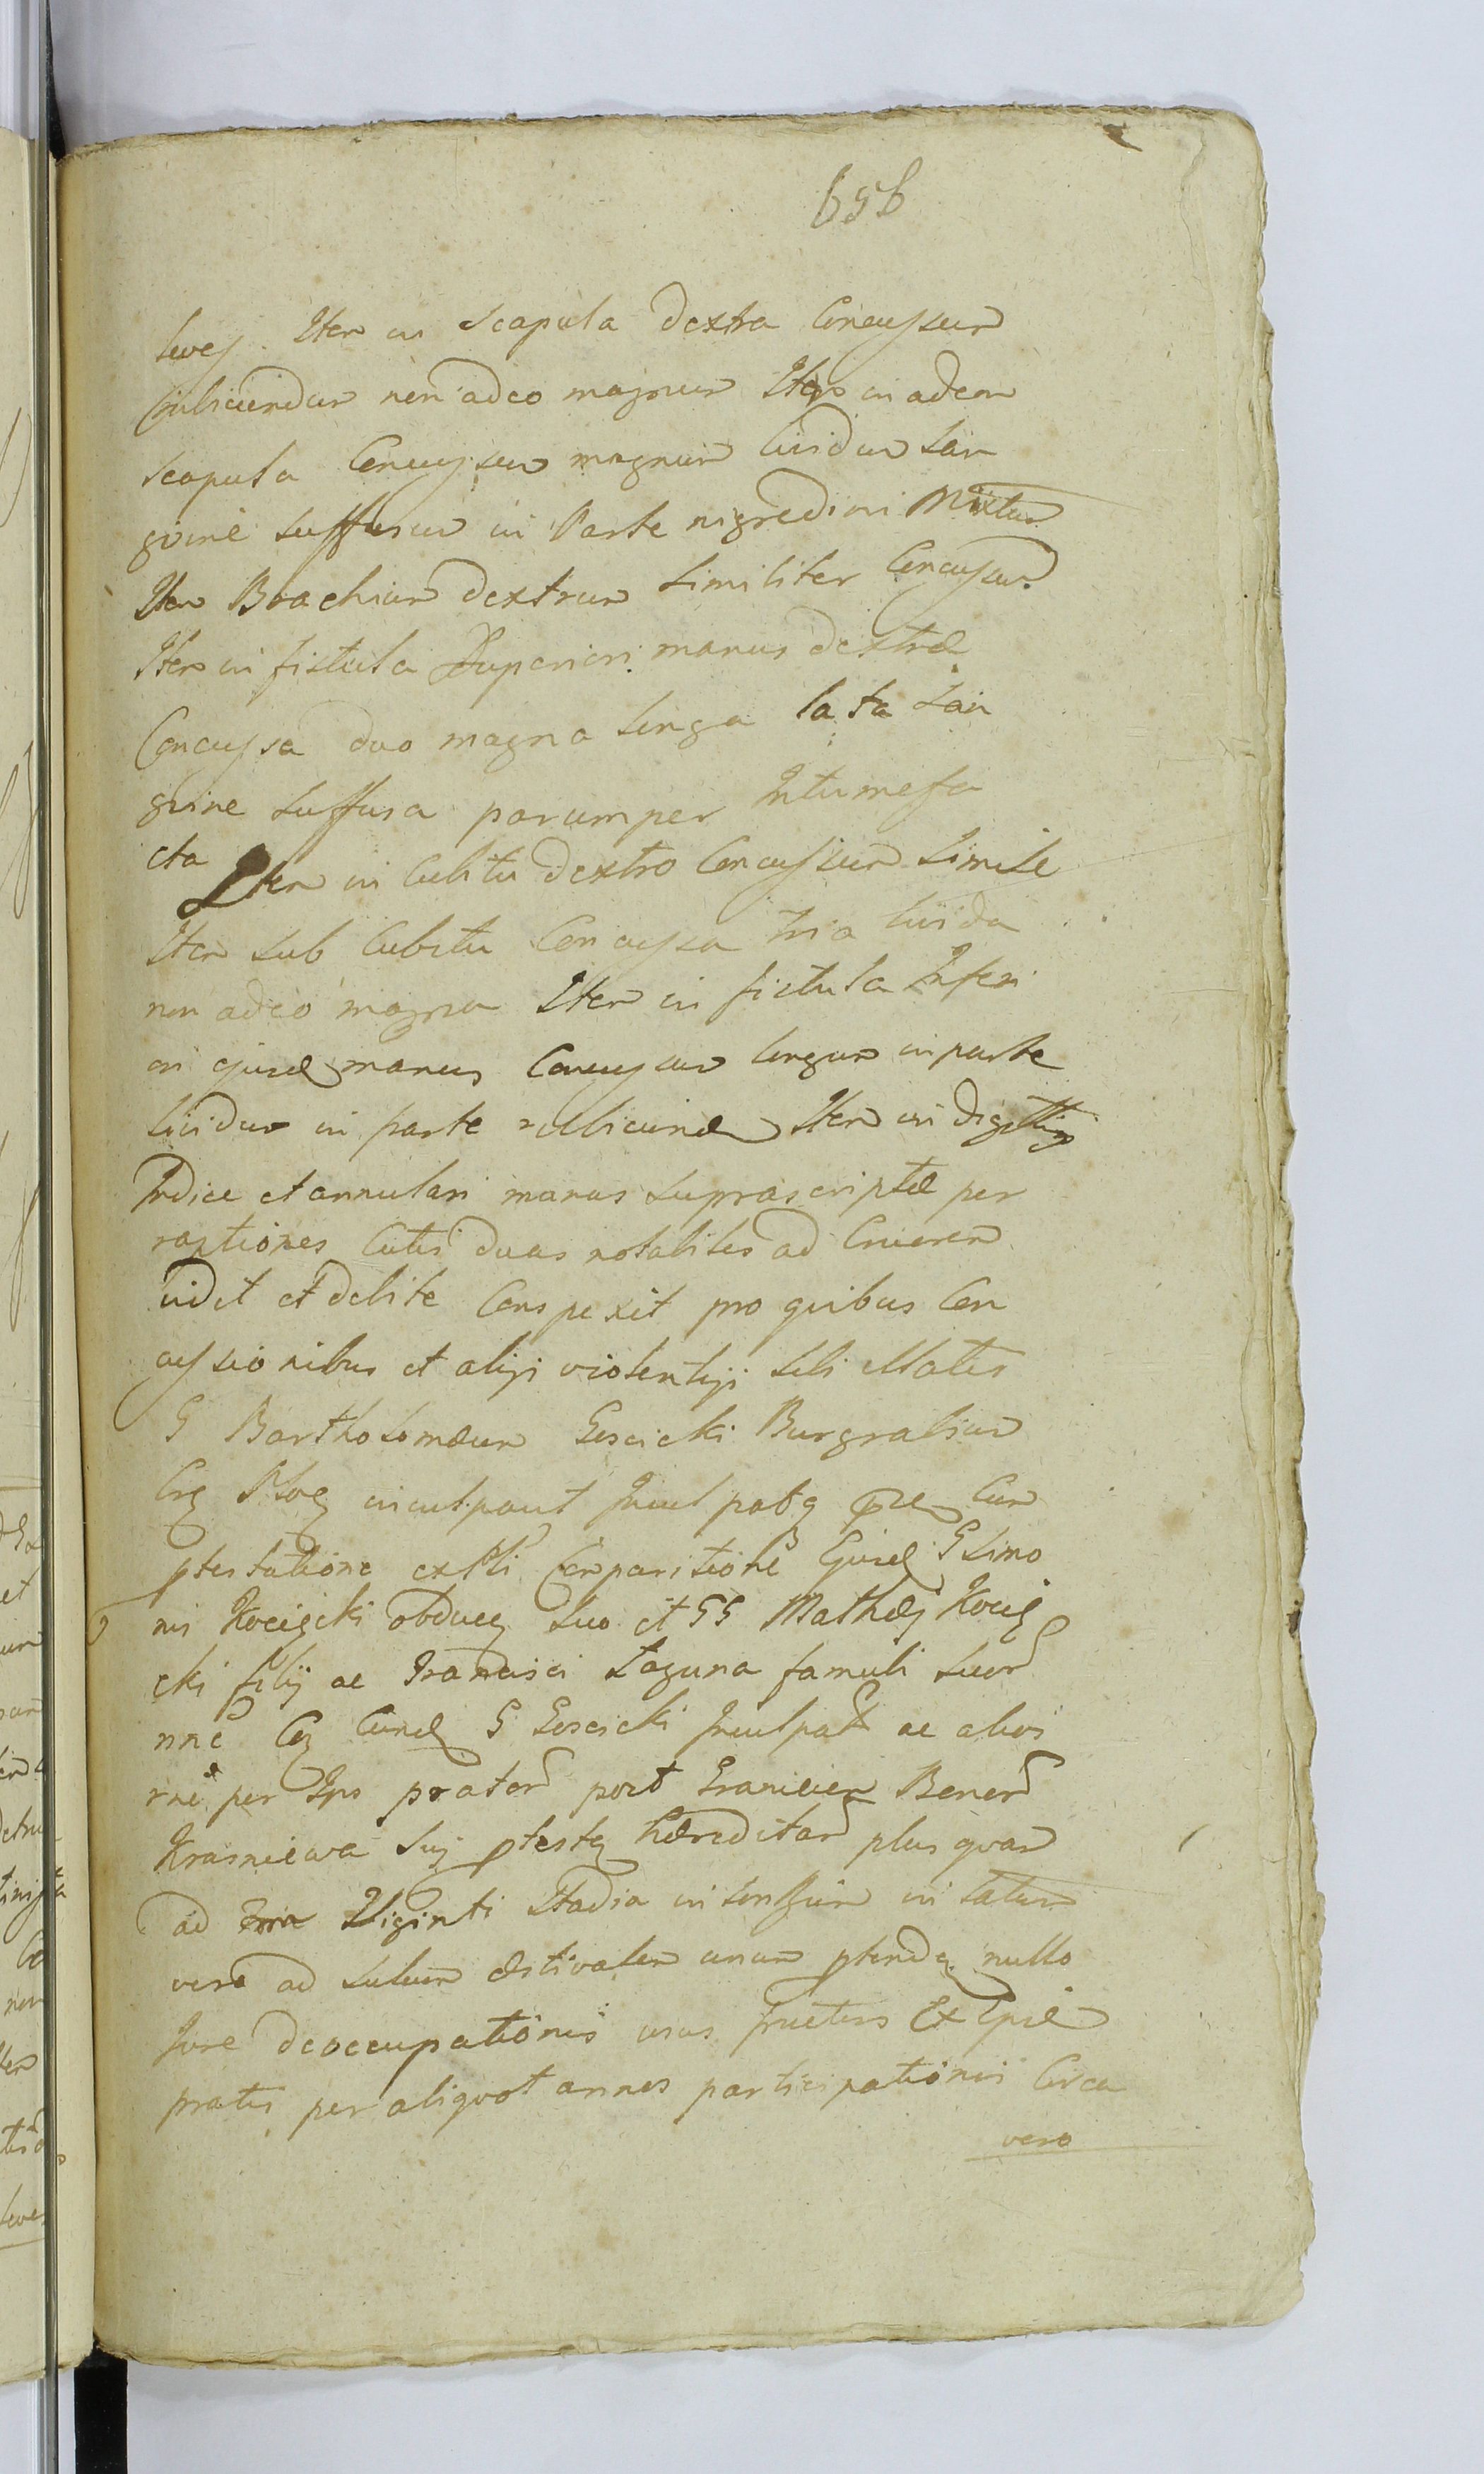 656
leves. Item in Scapula dextra Concussum
rubicundum non adeo magnum Item in eadem
scapula Concussum magnum lividum San
guine suffusum in Parte nigredini Mixtum
Item Brachium dextrum similiter Concussum
Item in fistula Superiori manus dextræ
Concussa duo magna longa lata San
guine suffusa parumper Intumefa
cta Item in Cubitu dextro Concussum simile
Item sub Cubitu Concussa tria livida
non adeo magna Item in fistula Inferi
ori ejusd manus Concussum longum in parte
lividum in parte rubicund Item in digitis
Indice et annulari manus suprascriptæ per
raptiones Cutis duas notabiles ad Cruorem
vidit et debite Conspexit pro quibus Con
cussionibus et alijs violentijs sibi illatis
G Bartholomæum Goscicki Burgrabium
Crg Ploc inculpavit Inculpatq præ Cum
ptestatione ex Comparitione Ejusd G Simo
nis Kocięcki obducen suo et GG Mathæj Kocię
cki filij ac Francisci Laguna famuli suor
nne Cog Eund G Goscicki Inculpat ac
rne per Ips prator post Graniciem Bonor
Krasniewa Suj ptestq hæreditar plus quam
ad Viginti Stadia in longum in latum
vero ad sulcum æstivalem unum ptendq nullo
Jure deoccupationis usus fructus Ex Ipis
pratis per aliquot annos participationis Circa
vero